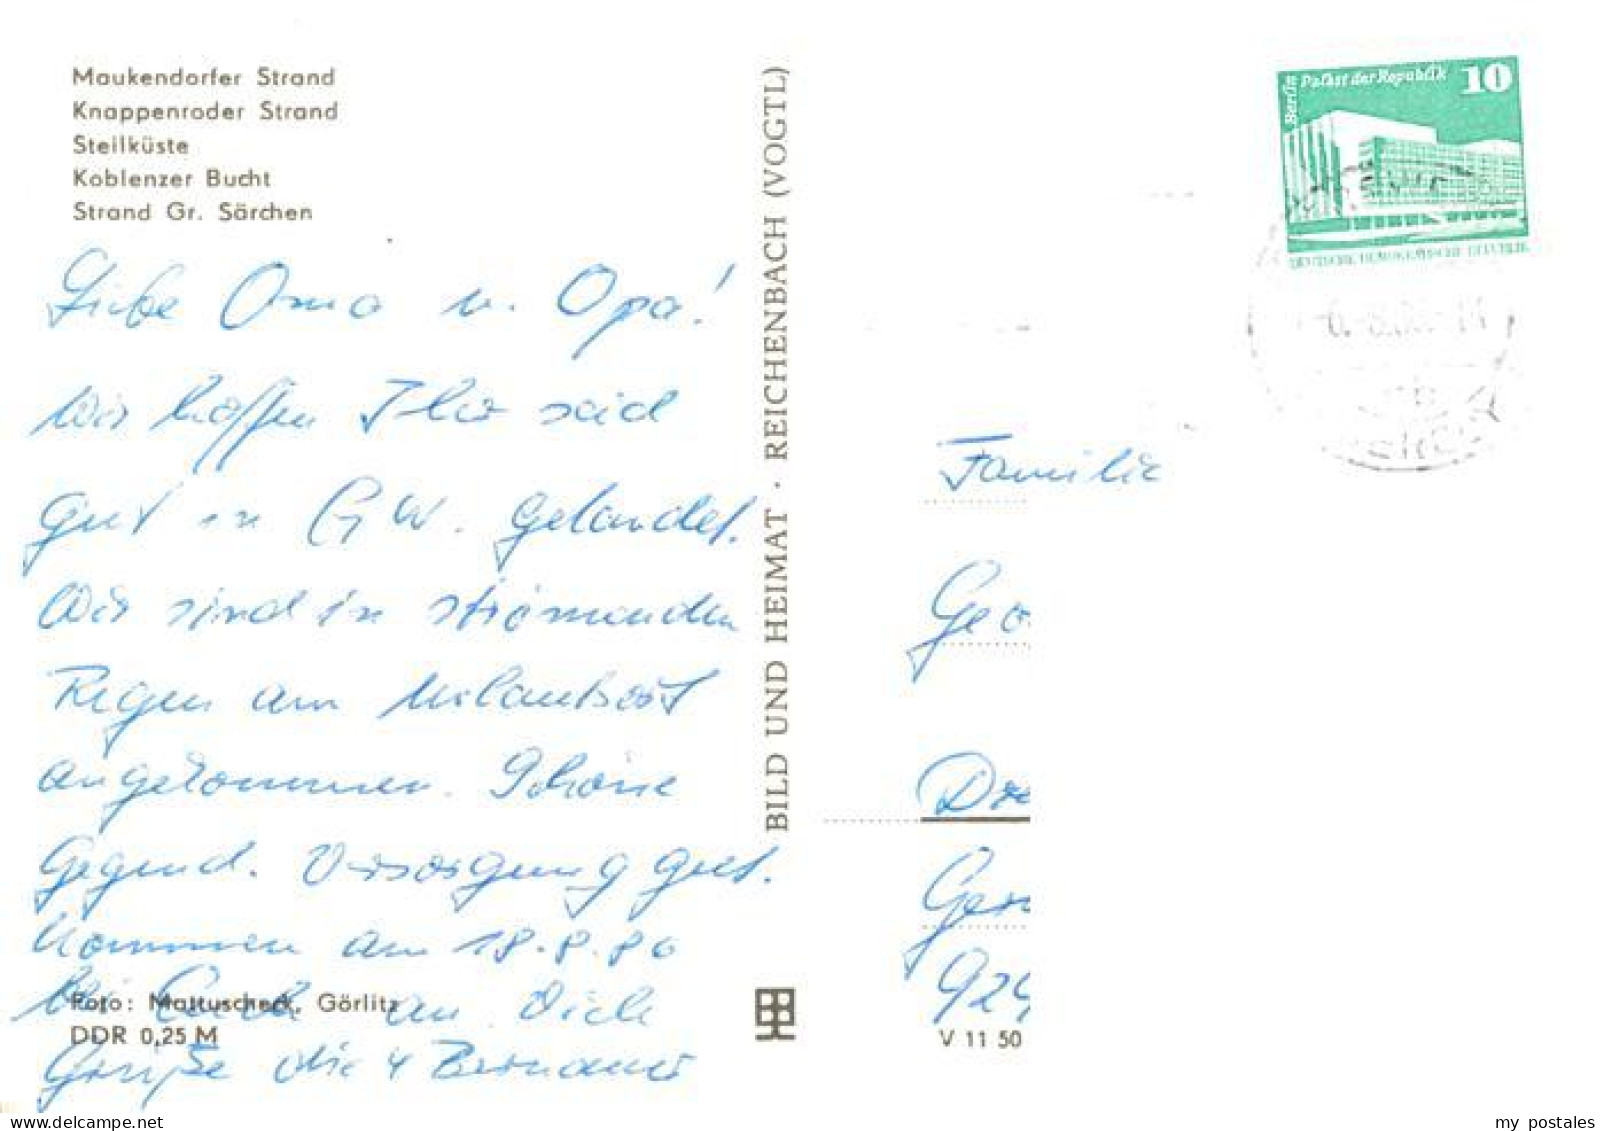 Maukendorfer Strand
Knappenroder Strand
Steilküste
Koblenzer Bucht
Strand Gr. Särchen
Liebe Oma u. Opa!
Wir hoffen Ihr seid
gut in GW. gelandet.
Wir sind in strömenden
Regen am Urlaubsort
angekommen. Schöne
Gegend. Versorgung gut.
Kommen am 18.8.86
bei Euch an. Viele
Grüße die 4
Foto: Mattuscheck, Görlitz
DDR 0,25 M
BILD UND HEIMAT · REICHENBACH (VOGTL)
Berlin Palast der Republik 10
DEUTSCHE DEMOKRATISCHE REPUBLIK
Familie
Geo
Dre
Ger
924
V 11 50
my postales